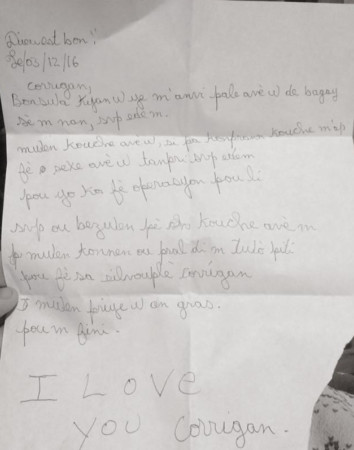 Dieu est bon!!
/03/12/16
corrigan,
Bonswa Kijan w ye m'anvi pale avè w de bagay
sè m nan, svp edem.
mwen kouche avè w, kouche m'ap
fè sexe avè w tanpri svp edem
pou yo ka fè operasyon pou li
svp ou bezwen pè kouche avè m
mwen konnen ou pral di m piti
pou fè sa silvouplè corrigan
mwen priye w an gras.
pou m fini.
I LOVE
YOU corrigan.